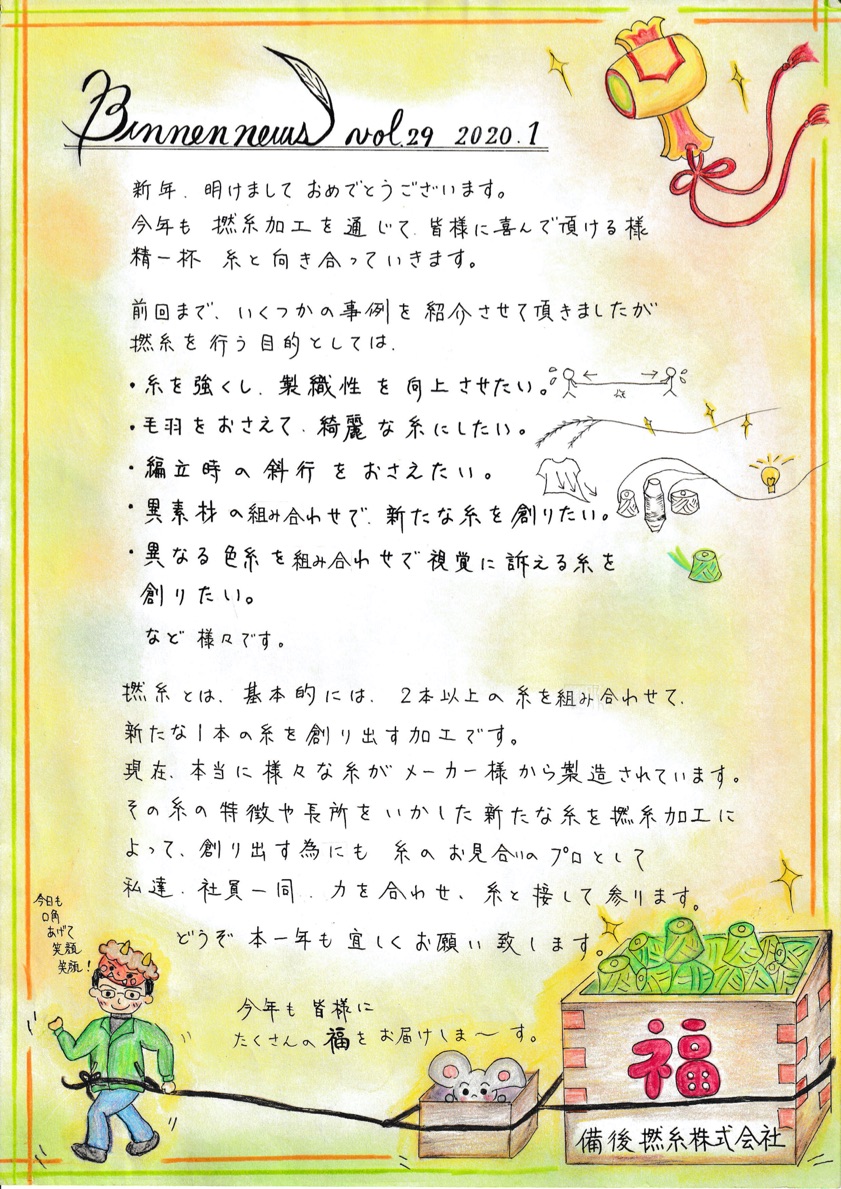 Binnen news vol.29 2020.1
新年、明けまして おめでとうございます。
今年も 撚糸加工を通じて、皆様に喜んで頂ける様
精一杯 糸と向き合っていきます。
前回まで、いくつかの事例を紹介させて頂きましたが
撚糸を行う目的としては、
・糸を強くし、製織性を向上させたい。
・毛羽をおさえて、綺麗な糸にしたい。
・編立時の斜行をおさえたい。
・異素材の組み合わせで、新たな糸を創りたい。
・異なる色糸を組み合わせで視覚に訴える糸を
創りたい。
など様々です。
撚糸とは、基本的には、2本以上の糸を組み合わせて、
新たな1本の糸を創り出す加工です。
現在、本当に様々な糸がメーカー様から製造されています。
その糸の特徴や長所をいかした新たな糸を撚糸加工に
よって、創り出す為にも 糸のお見合いのプロとして
私達、社員一同、力を合わせ、糸と接して参ります。
どうぞ 本一年も宜しくお願い致します。
今日も
口角
あげて
笑顔
笑顔!
今年も皆様に
たくさんの福をお届けしま〜す。
福
備後撚糸株式会社